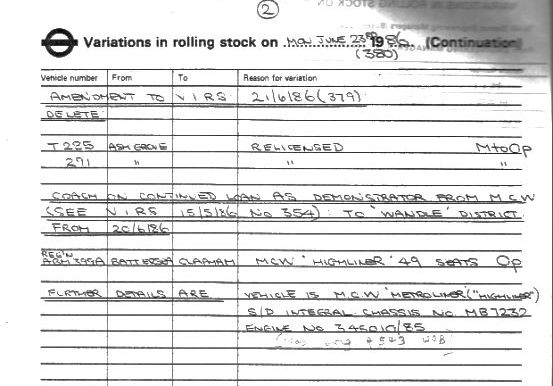 2
Variations in rolling stock on MON JUNE 23RD 1986. (Continuation)
(380)
Vehicle number From To Reason for variation
AMENDMENT TO V I R S 21/6/86 (379)
DELETE
T225 ASH GROVE RELICENSED M to Op
271 " " "
COACH ON CONTINUED LOAN AS DEMONSTRATOR FROM M C W
(SEE V I R S 15/5/86 No 354) : TO 'WANDLE' DISTRICT
FROM 20/6/86
REG'N
BATTERSEA CLAPHAM MCW 'HIGHLINER' 49 SEATS Op
FURTHER DETAILS ARE VEHICLE IS M.C.W 'METROLINER' ("HIGHLINER")
S/D INTEGRAL CHASSIS No MB7232
ENGINE NO 346010/85